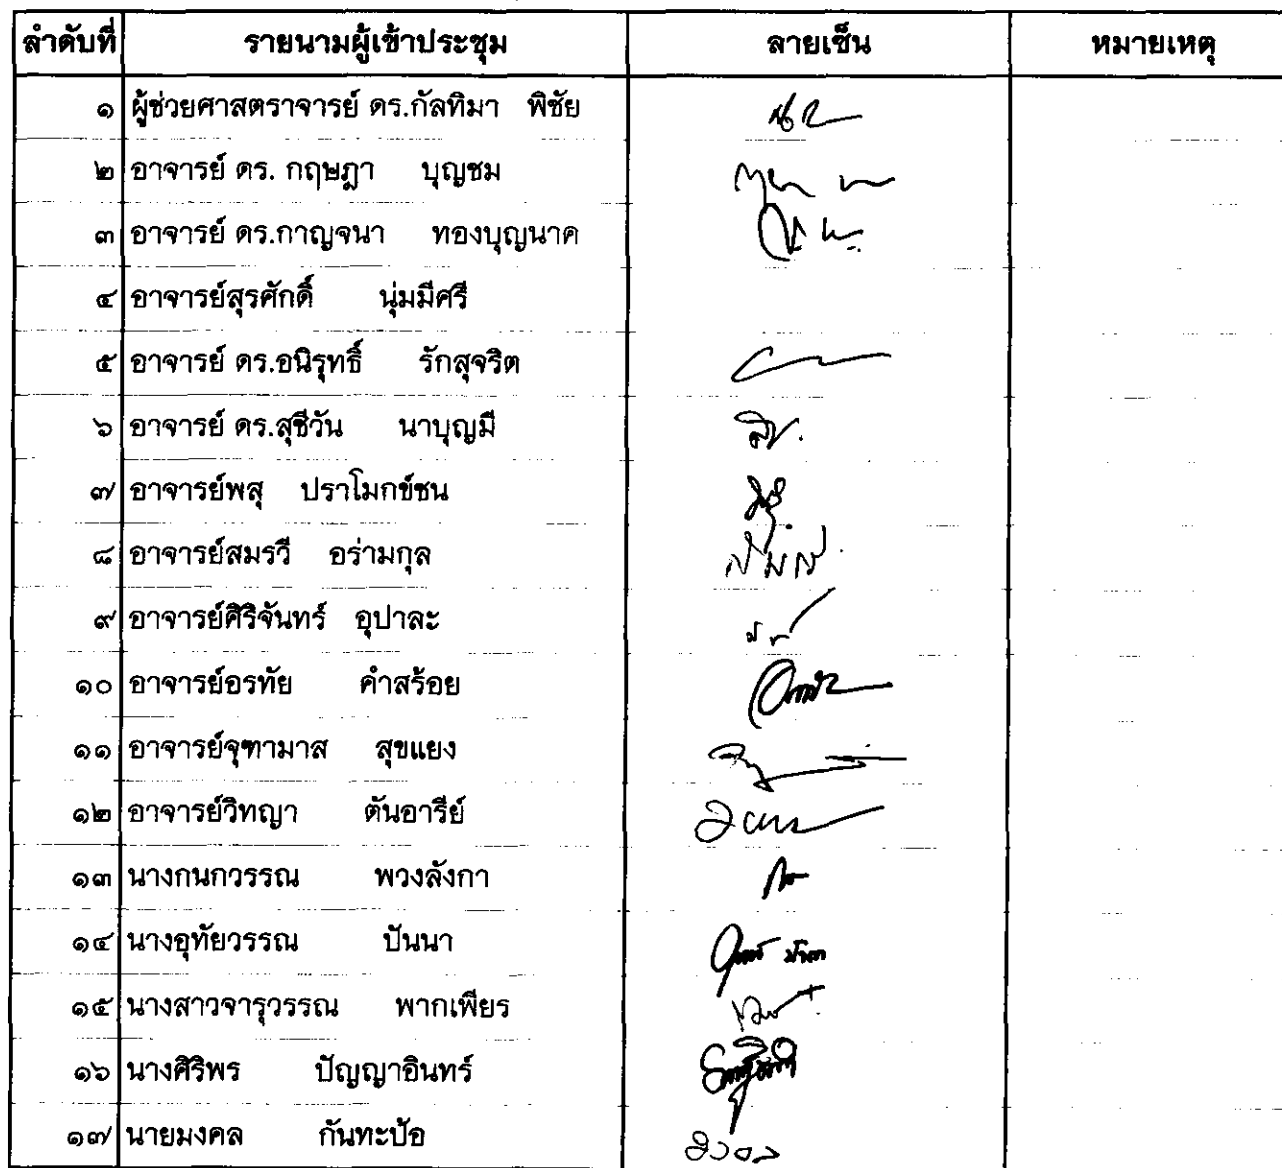 ลำดับที่ รายนามผู้เข้าประชุม ลายเซ็น หมายเหตุ
๑ ผู้ช่วยศาสตราจารย์ ดร.กัลทิมา พิชัย
๒ อาจารย์ ดร. กฤษฎา บุญชม
๓ อาจารย์ ดร.กาญจนา ทองบุญนาค
๔ อาจารย์สุรศักดิ์ นุ่มมีศรี
๕ อาจารย์ ดร.อนิรุทธิ์ รักสุจริต
๖ อาจารย์ ดร.สุชีวัน นาบุญมี
๗ อาจารย์พสุ ปราโมกข์ชน
๘ อาจารย์สมรวี อร่ามกุล
๙ อาจารย์ศิริจันทร์ อุปาละ
๑๐ อาจารย์อรทัย คำสร้อย
๑๑ อาจารย์จุฑามาส สุขแยง
๑๒ อาจารย์วิทญา ตันอารีย์
๑๓ นางกนกวรรณ พวงลังกา
๑๔ นางอุทัยวรรณ ปันนา
๑๕ นางสาวจารุวรรณ พากเพียร
๑๖ นางศิริพร ปัญญาอินทร์
๑๗ นายมงคล กันทะป้อ